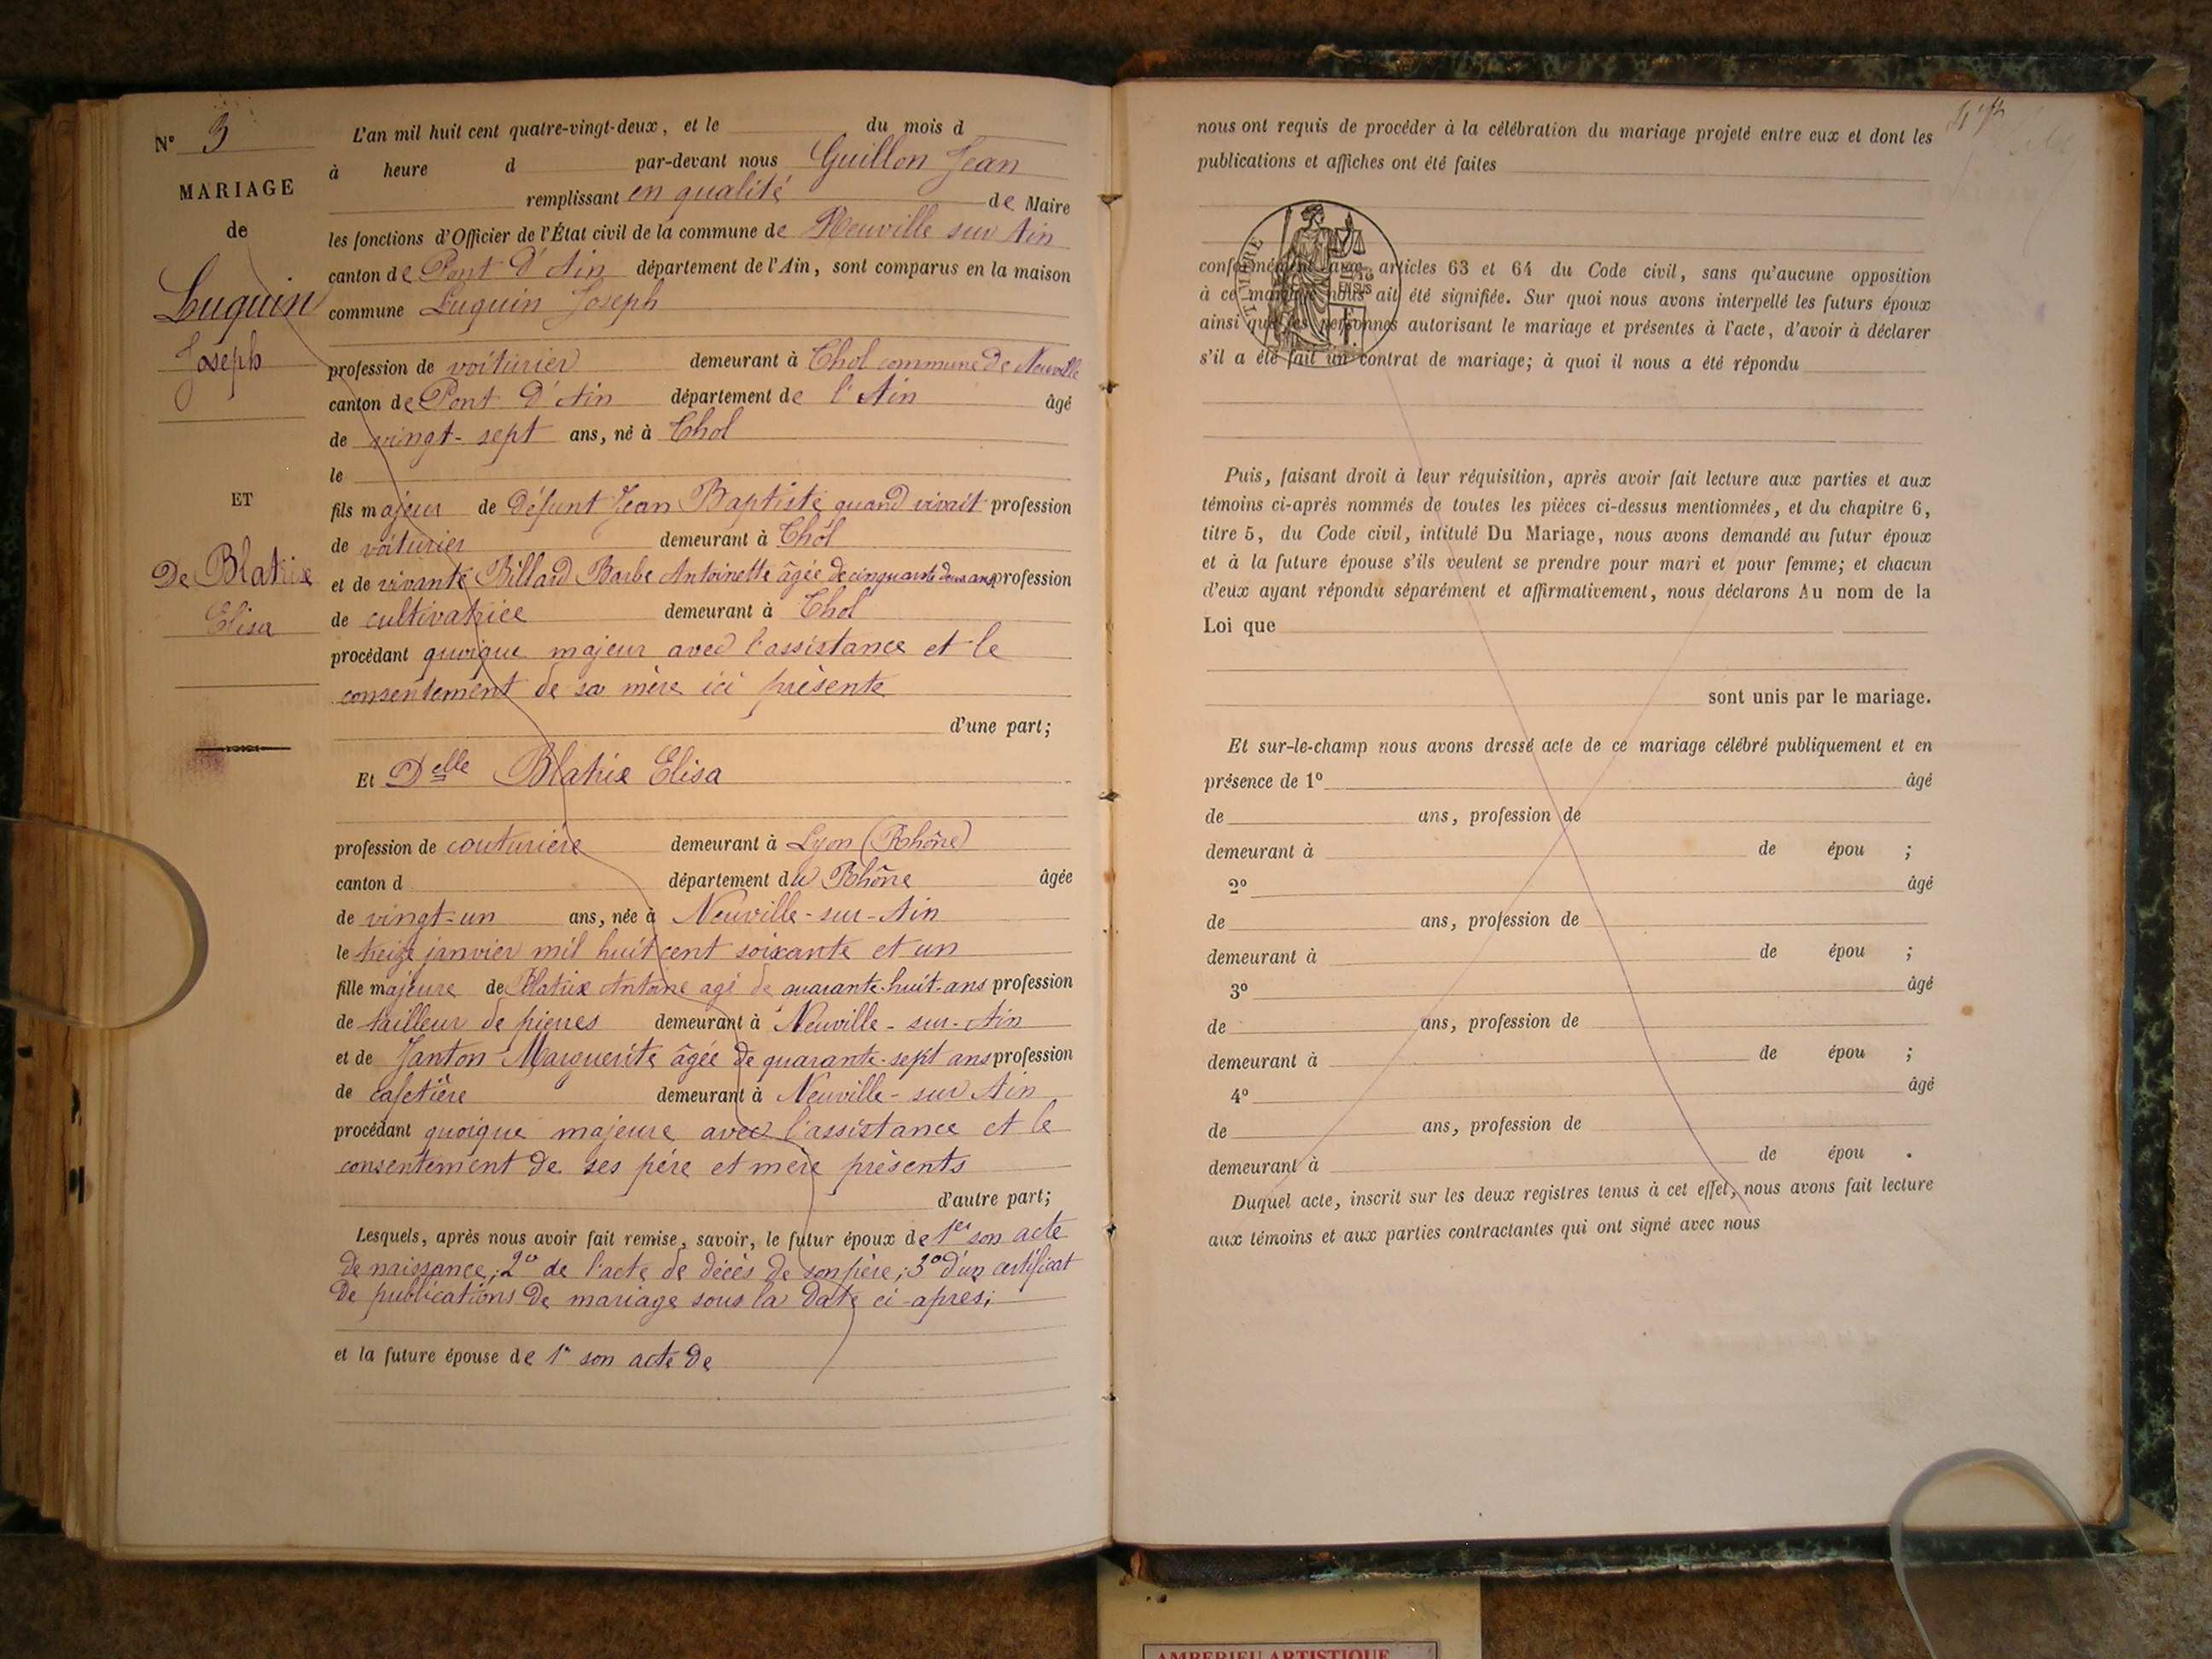 N° 3
MARIAGE
de
Luquin
Joseph
ET
De Blatrix
Elisa
L'an mil huit cent quatre-vingt-deux, et le du mois d
à heure d par-devant nous Guillon Jean
remplissant en qualité de Maire
les fonctions d'Officier de l'État civil de la commune de Neuville sur Ain
canton de Pont d'Ain département de l'Ain, sont comparus en la maison
commune Luquin Joseph
profession de voiturier demeurant à Thol commune de Neuville
canton de Pont d'Ain département de l'Ain âgé
de vingt-sept ans, né à Thol
le
fils majeur de défunt Jean Baptiste quand vivait profession
de voiturier demeurant à Thol
et de vivante Billard Barbe Antoinette âgée de cinquante deux ans profession
de cultivatrice demeurant à Thol
procédant quoique majeur avec l'assistance et le
consentement de sa mère ici présente
d'une part;
Et Delle Blatrix Elisa
profession de couturière demeurant à Lyon (Rhône)
canton d département du Rhône âgée
de vingt-un ans, née à Neuville-sur-Ain
le treize janvier mil huit cent soixante et un
fille majeure de Blatrix Antoine agé de quarante-huit-ans profession
de tailleur de pierres demeurant à Neuville-sur-Ain
et de Janton Marguerite âgée de quarante-sept ans profession
de cafetière demeurant à Neuville-sur Ain
procédant quoique majeure avec l'assistance et le
consentement de ses père et mère présents
d'autre part;
Lesquels, après nous avoir fait remise, savoir, le futur époux de 1er son acte
de naissance; 2° de l'acte de décès de son père; 3° d'un certificat
de publications de mariage sous la date ci-après;
et la future épouse de 1° son acte de
nous ont requis de procéder à la célébration du mariage projeté entre eux et dont les
publications et affiches ont été faites
TIMBRE
conformément aux articles 63 et 64 du Code civil, sans qu'aucune opposition
à ce mariage nous ait été signifiée. Sur quoi nous avons interpellé les futurs époux
ainsi que les personnes autorisant le mariage et présentes à l'acte, d'avoir à déclarer
s'il a été fait un contrat de mariage; à quoi il nous a été répondu
Puis, faisant droit à leur réquisition, après avoir fait lecture aux parties et aux
témoins ci-après nommés de toutes les pièces ci-dessus mentionnées, et du chapitre 6,
titre 5, du Code civil, intitulé Du Mariage, nous avons demandé au futur époux
et à la future épouse s'ils veulent se prendre pour mari et pour femme; et chacun
d'eux ayant répondu séparément et affirmativement, nous déclarons Au nom de la
Loi que
sont unis par le mariage.
Et sur-le-champ nous avons dressé acte de ce mariage célébré publiquement et en
présence de 1° âgé
de ans, profession de
demeurant à de épou ;
2° âgé
de ans, profession de
demeurant à de épou ;
3° âgé
de ans, profession de
demeurant à de épou ;
4° âgé
de ans, profession de
demeurant à de épou .
Duquel acte, inscrit sur les deux registres tenus à cet effet, nous avons fait lecture
aux témoins et aux parties contractantes qui ont signé avec nous
AMBERIEU ARTISTIQUE